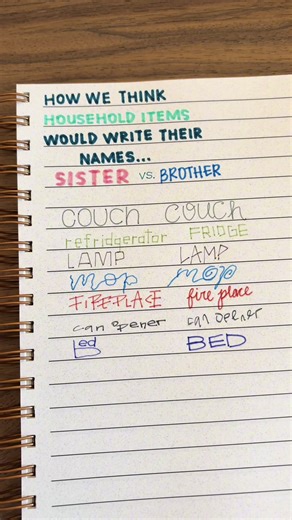 HOW WE THINK
HOUSEHOLD ITEMS
WOULD WRITE THEIR
NAMES...
SISTER vs. BROTHER
COUCH couch
refridgerator FRIDGE
LAMP LAMP
mop mop
FIREPLASE fire place
can opener can opener
bed BED